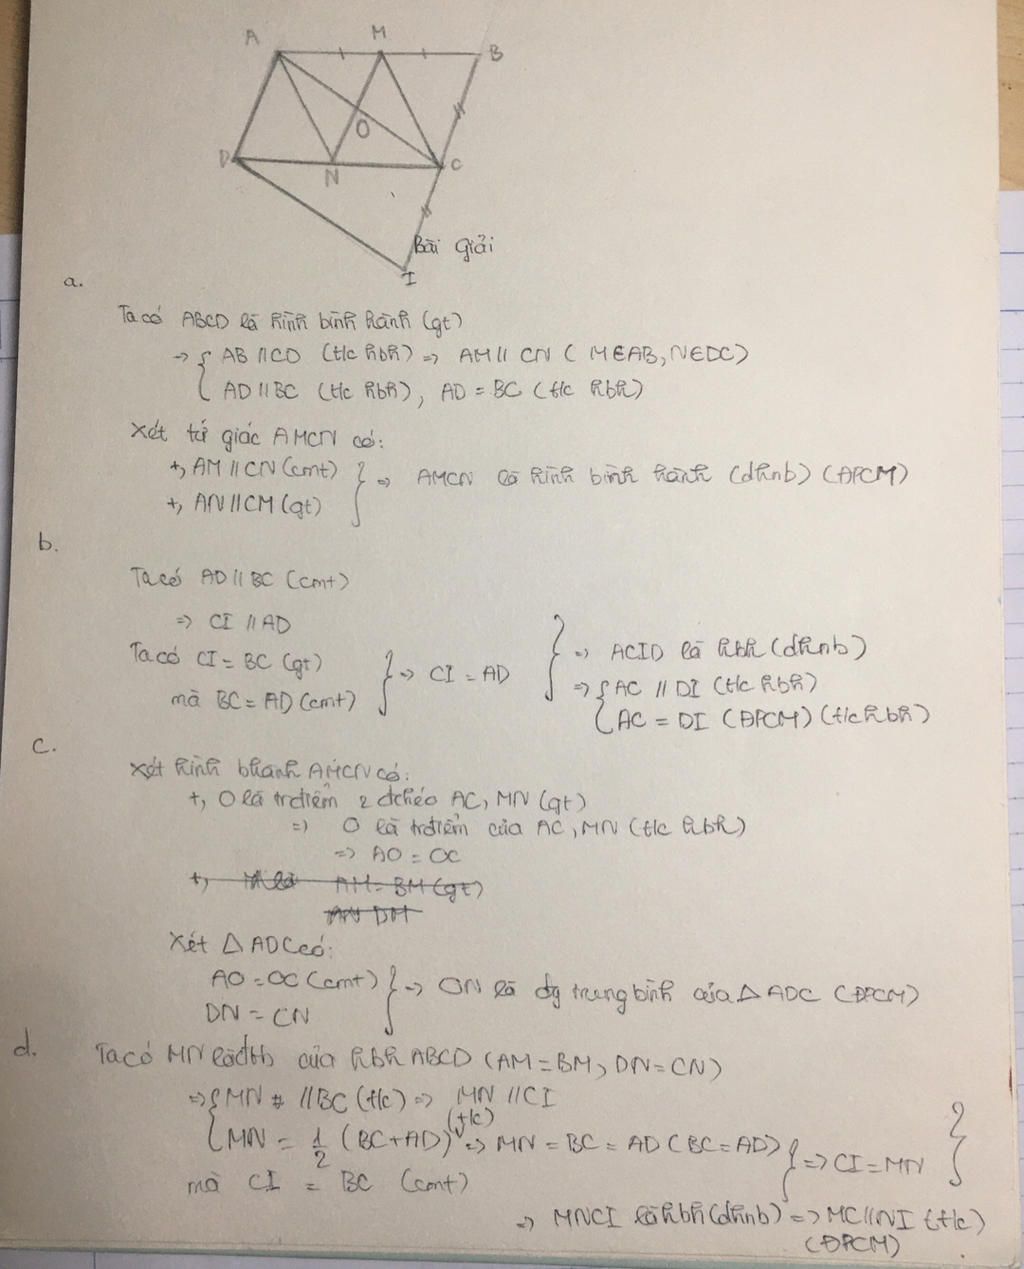 A M B
O
D N C
I
Bài giải
a.
Ta có ABCD là hình bình hành (gt)
→ { AB // CD (t/c hbh) => AM // CN ( M∈AB, N∈DC)
AD // BC (t/c hbh), AD = BC (t/c hbh)
Xét tứ giác AMCN có:
+, AM // CN (cmt)
+, AN // CM (gt) } => AMCN là hình bình hành (dhnb) (ĐPCM)
b.
Ta có AD // BC (cmt)
=> CI // AD
Ta có CI = BC (gt)
mà BC = AD (cmt) } => CI = AD
} => ACID là hbh (dhnb)
=> { AC // DI (t/c hbh)
AC = DI (ĐPCM) (t/c hbh)
c.
Xét hình bhành AMCN có:
+, O là trđiểm 2 đchéo AC, MN (gt)
=> O là trđiểm của AC, MN (t/c hbh)
=> AO = OC
+, M là AM = BM (gt)
Xét △ ADC có:
AO = OC (cmt)
DN = CN } => ON là đg trung bình của △ ADC (ĐPCM)
d. Ta có MN là đtb của hbh ABCD (AM = BM, DN = CN)
=> { MN // BC (t/c) => MN // CI
MN = 1/2 (BC + AD) (t/c) => MN = BC = AD (BC = AD)
mà CI = BC (cmt) } => CI = MN }
=> MNCI là hbh (dhnb) => MC // NI (t/c)
(ĐPCM)